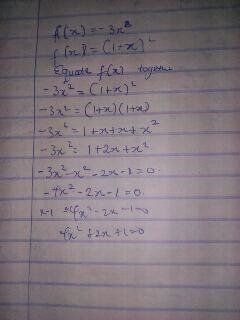 f(x) = -3x²
f(x) = (1+x)²
Equate f(x) together
-3x² = (1+x)²
-3x² = (1+x)(1+x)
-3x² = 1+x+x+x²
-3x² = 1+2x+x²
-3x²-x²-2x-1=0.
-4x²-2x-1=0.
x-1 -4x²-2x-1=0
4x²+2x+1=0